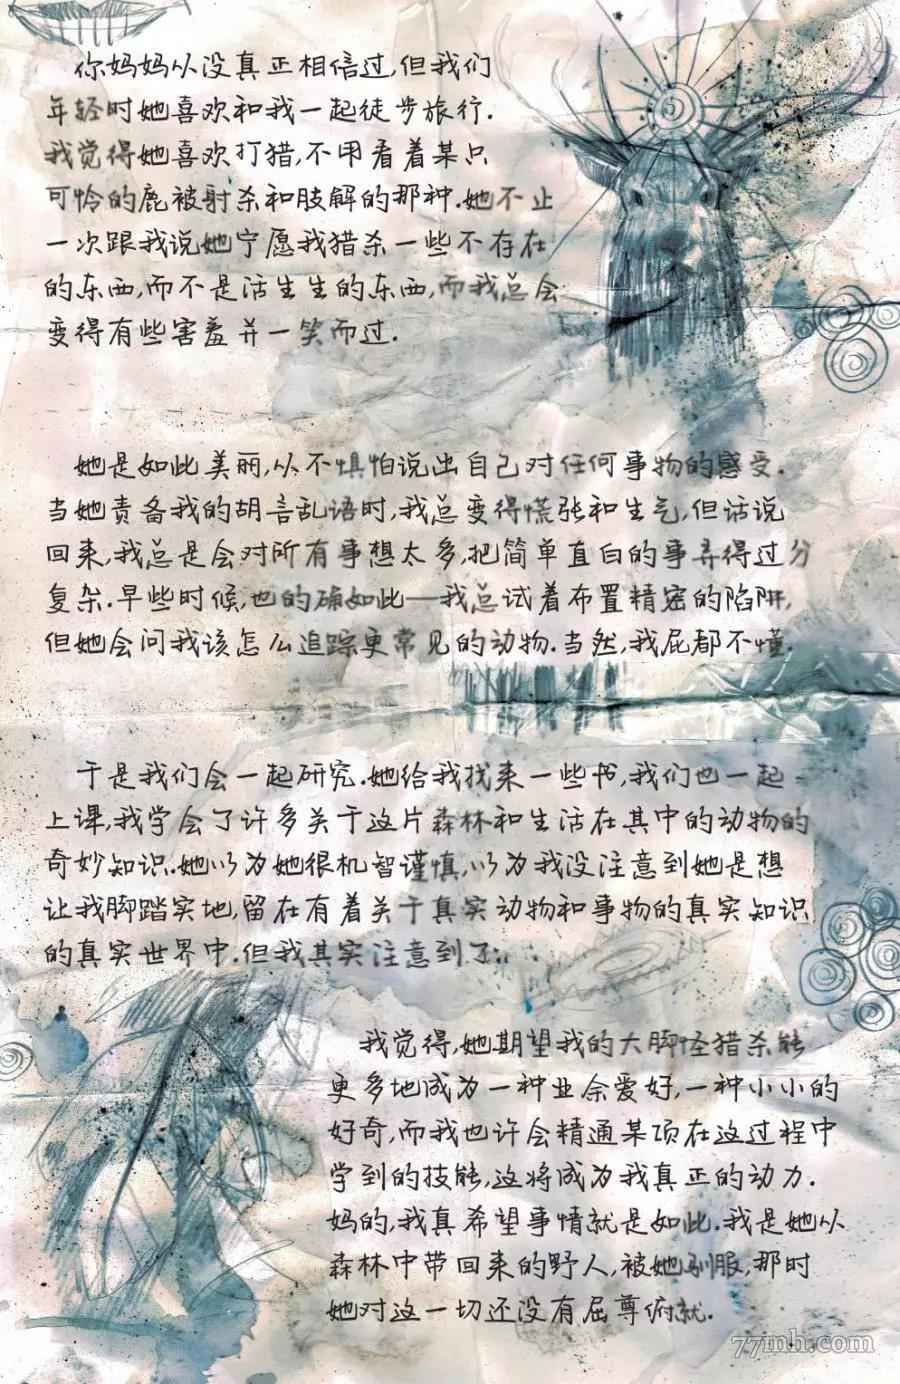 你妈妈从没真正相信过,但我们
年轻时她喜欢和我一起徒步旅行.
我觉得她喜欢打猎,不用看着某只
可怜的鹿被射杀和肢解的那种.她不止
一次跟我说她宁愿我猎杀一些不存在
的东西,而不是活生生的东西,而我总会
变得有些害羞并一笑而过.
她是如此美丽,从不惧怕说出自己对任何事物的感受.
当她责备我的胡言乱语时,我总变得慌张和生气,但话说
回来,我总是会对所有事想太多,把简单直白的事弄得过分
复杂.早些时候,也的确如此——我总试着布置精密的陷阱,
但她会问我该怎么追踪更常见的动物.当然,我屁都不懂.
于是我们会一起研究.她给我找来一些书,我们也一起
上课,我学会了许多关于这片森林和生活在其中的动物的
奇妙知识.她以为她很机智谨慎,以为我没注意到她是想
让我脚踏实地,留在有着关于真实动物和事物的真实知识
的真实世界中.但我其实注意到了.
我觉得,她期望我的大脚怪猎杀能
更多地成为一种业余爱好,一种小小的
好奇,而我也许会精通某项在这过程中
学到的技能,这将成为我真正的动力.
妈的,我真希望事情就是如此.我是她从
森林中带回来的野人,被她驯服,那时
她对这一切还没有屈尊俯就.
77mh.com